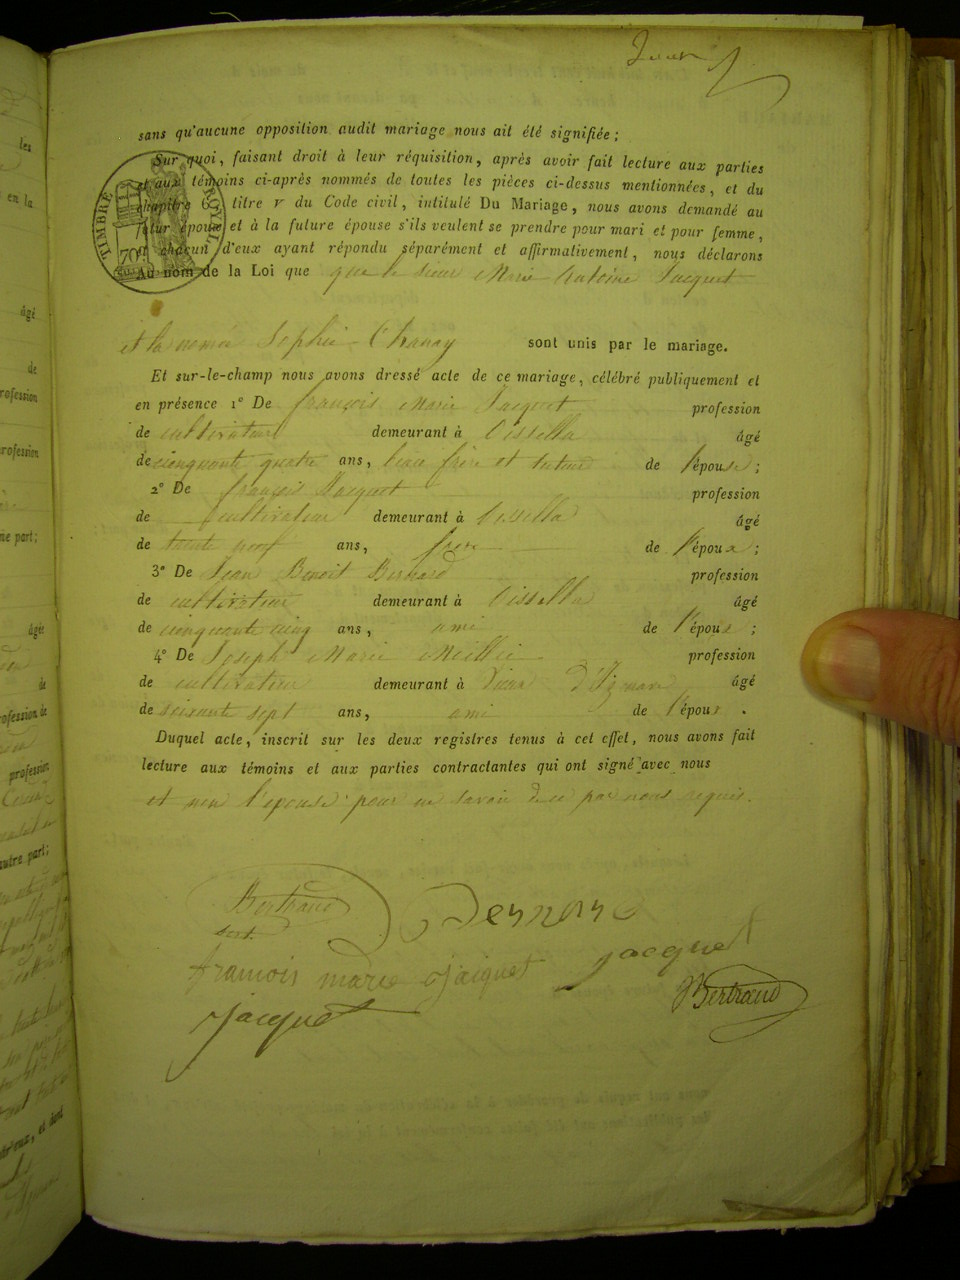 sans qu'aucune opposition audit mariage nous ait été signifiée ;
Sur quoi, faisant droit à leur réquisition, après avoir fait lecture aux parties
et aux témoins ci-après nommés de toutes les pièces ci-dessus mentionnées, et du
chapitre titre V du Code civil, intitulé Du Mariage, nous avons demandé au
futur époux et à la future épouse s'ils veulent se prendre pour mari et pour femme,
et chacun d'eux ayant répondu séparément et affirmativement, nous déclarons
Au nom de la Loi que que le sieur Marie Antoine Jacquet
TIMBRE ROYAL
70
et la nomée Sophie Chanay sont unis par le mariage.
Et sur-le-champ nous avons dressé acte de ce mariage, célébré publiquement et
en présence 1º De françois Marie Jacquet profession
de cultivateur demeurant à Cisella âgé
de cinquante quatre ans, beau frère et tuteur de l'épouse ;
2º De françois Jacquet profession
de cultivateur demeurant à Cisella âgé
de trente neuf ans, frère de l'époux ;
3º De Jean Benoit Bernard profession
de cultivateur demeurant à Cisella âgé
de cinquante cinq ans, ami de l'époux ;
4º De Joseph Marie profession
de cultivateur demeurant à âgé
de soixante sept ans, ami de l'époux .
Duquel acte, inscrit sur les deux registres tenus à cet effet, nous avons fait
lecture aux témoins et aux parties contractantes qui ont signé avec nous
et non l'epouse pour ne savoir de ce par nous requis.
Bertrand Bernard
françois marie jacquet jacquet
jacquet Bertrand